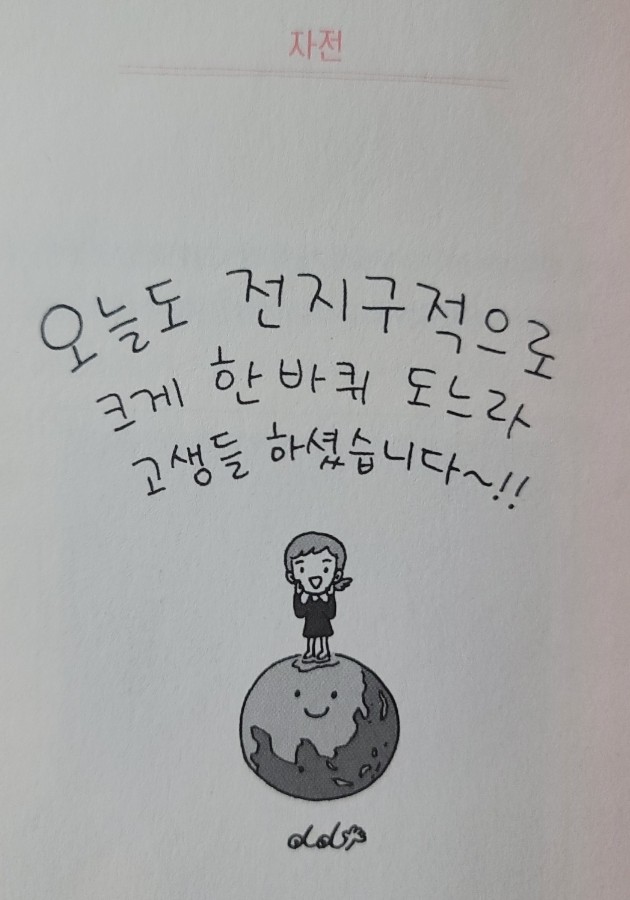 자전
오늘도 전지구적으로
크게 한바퀴 도느라
고생들 하셨습니다~!!